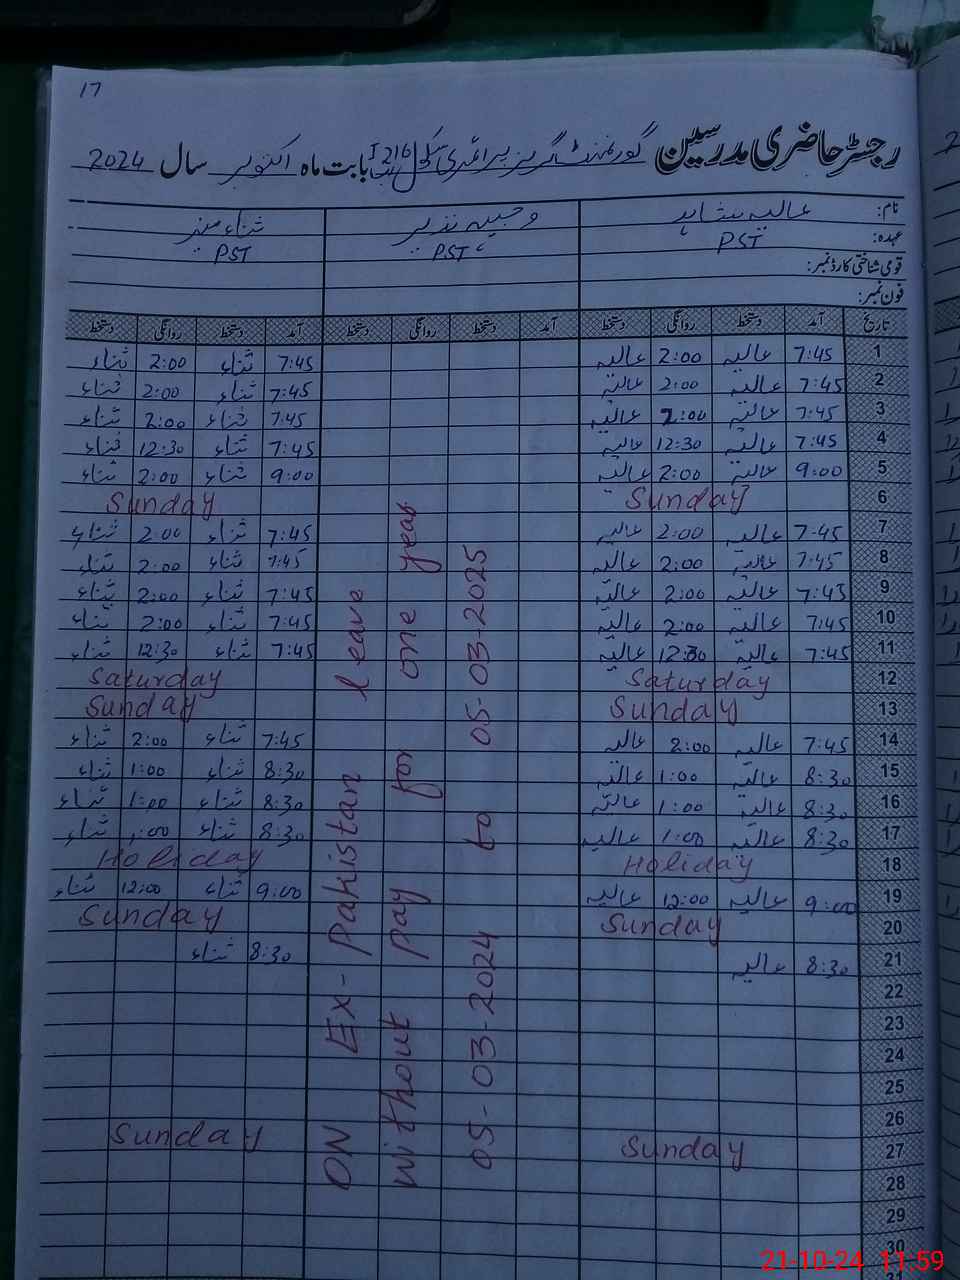 17
رجسٹر حاضری مدرسین گورنمنٹ گرلز پرائمری سکول 216 بابت ماہ اکتوبر سال 2024
نام: عالیہ وجیہہ نذیر ثناء منیر
عہدہ: PST PST PST
قومی شناختی کارڈ نمبر:
فون نمبر:
تاریخ آمد دستخط روانگی دستخط آمد دستخط روانگی دستخط آمد دستخط روانگی دستخط
1 7:45 عالیہ 2:00 عالیہ 7:45 ثناء 2:00 ثناء
2 7:45 عالیہ 2:00 عالیہ 7:45 ثناء 2:00 ثناء
3 7:45 عالیہ 2:00 عالیہ 7:45 ثناء 2:00 ثناء
4 7:45 عالیہ 12:30 عالیہ 7:45 ثناء 12:30 ثناء
5 9:00 عالیہ 2:00 عالیہ 9:00 ثناء 2:00 ثناء
6 Sunday Sunday
7 7:45 عالیہ 2:00 عالیہ 7:45 ثناء 2:00 ثناء
8 7:45 عالیہ 2:00 عالیہ 7:45 ثناء 2:00 ثناء
9 7:45 عالیہ 2:00 عالیہ 7:45 ثناء 2:00 ثناء
10 7:45 عالیہ 2:00 عالیہ 7:45 ثناء 2:00 ثناء
11 7:45 عالیہ 12:30 عالیہ 7:45 ثناء 12:30 ثناء
12 Saturday Saturday
13 Sunday Sunday
14 7:45 عالیہ 2:00 عالیہ 7:45 ثناء 2:00 ثناء
15 8:30 عالیہ 1:00 عالیہ 8:30 ثناء 1:00 ثناء
16 8:30 عالیہ 1:00 عالیہ 8:30 ثناء 1:00 ثناء
17 8:30 عالیہ 1:00 عالیہ 8:30 ثناء 1:00 ثناء
18 Holiday Holiday
19 9:00 عالیہ 12:00 عالیہ 9:00 ثناء 12:00 ثناء
20 Sunday Sunday
21 8:30 عالیہ 8:30 ثناء
22
23
24
25
26
27 Sunday Sunday
28
29
30
ON Ex-Pakistan leave
without pay for one year
05-03-2024 to 05-03-2025
21-10-24 11:59